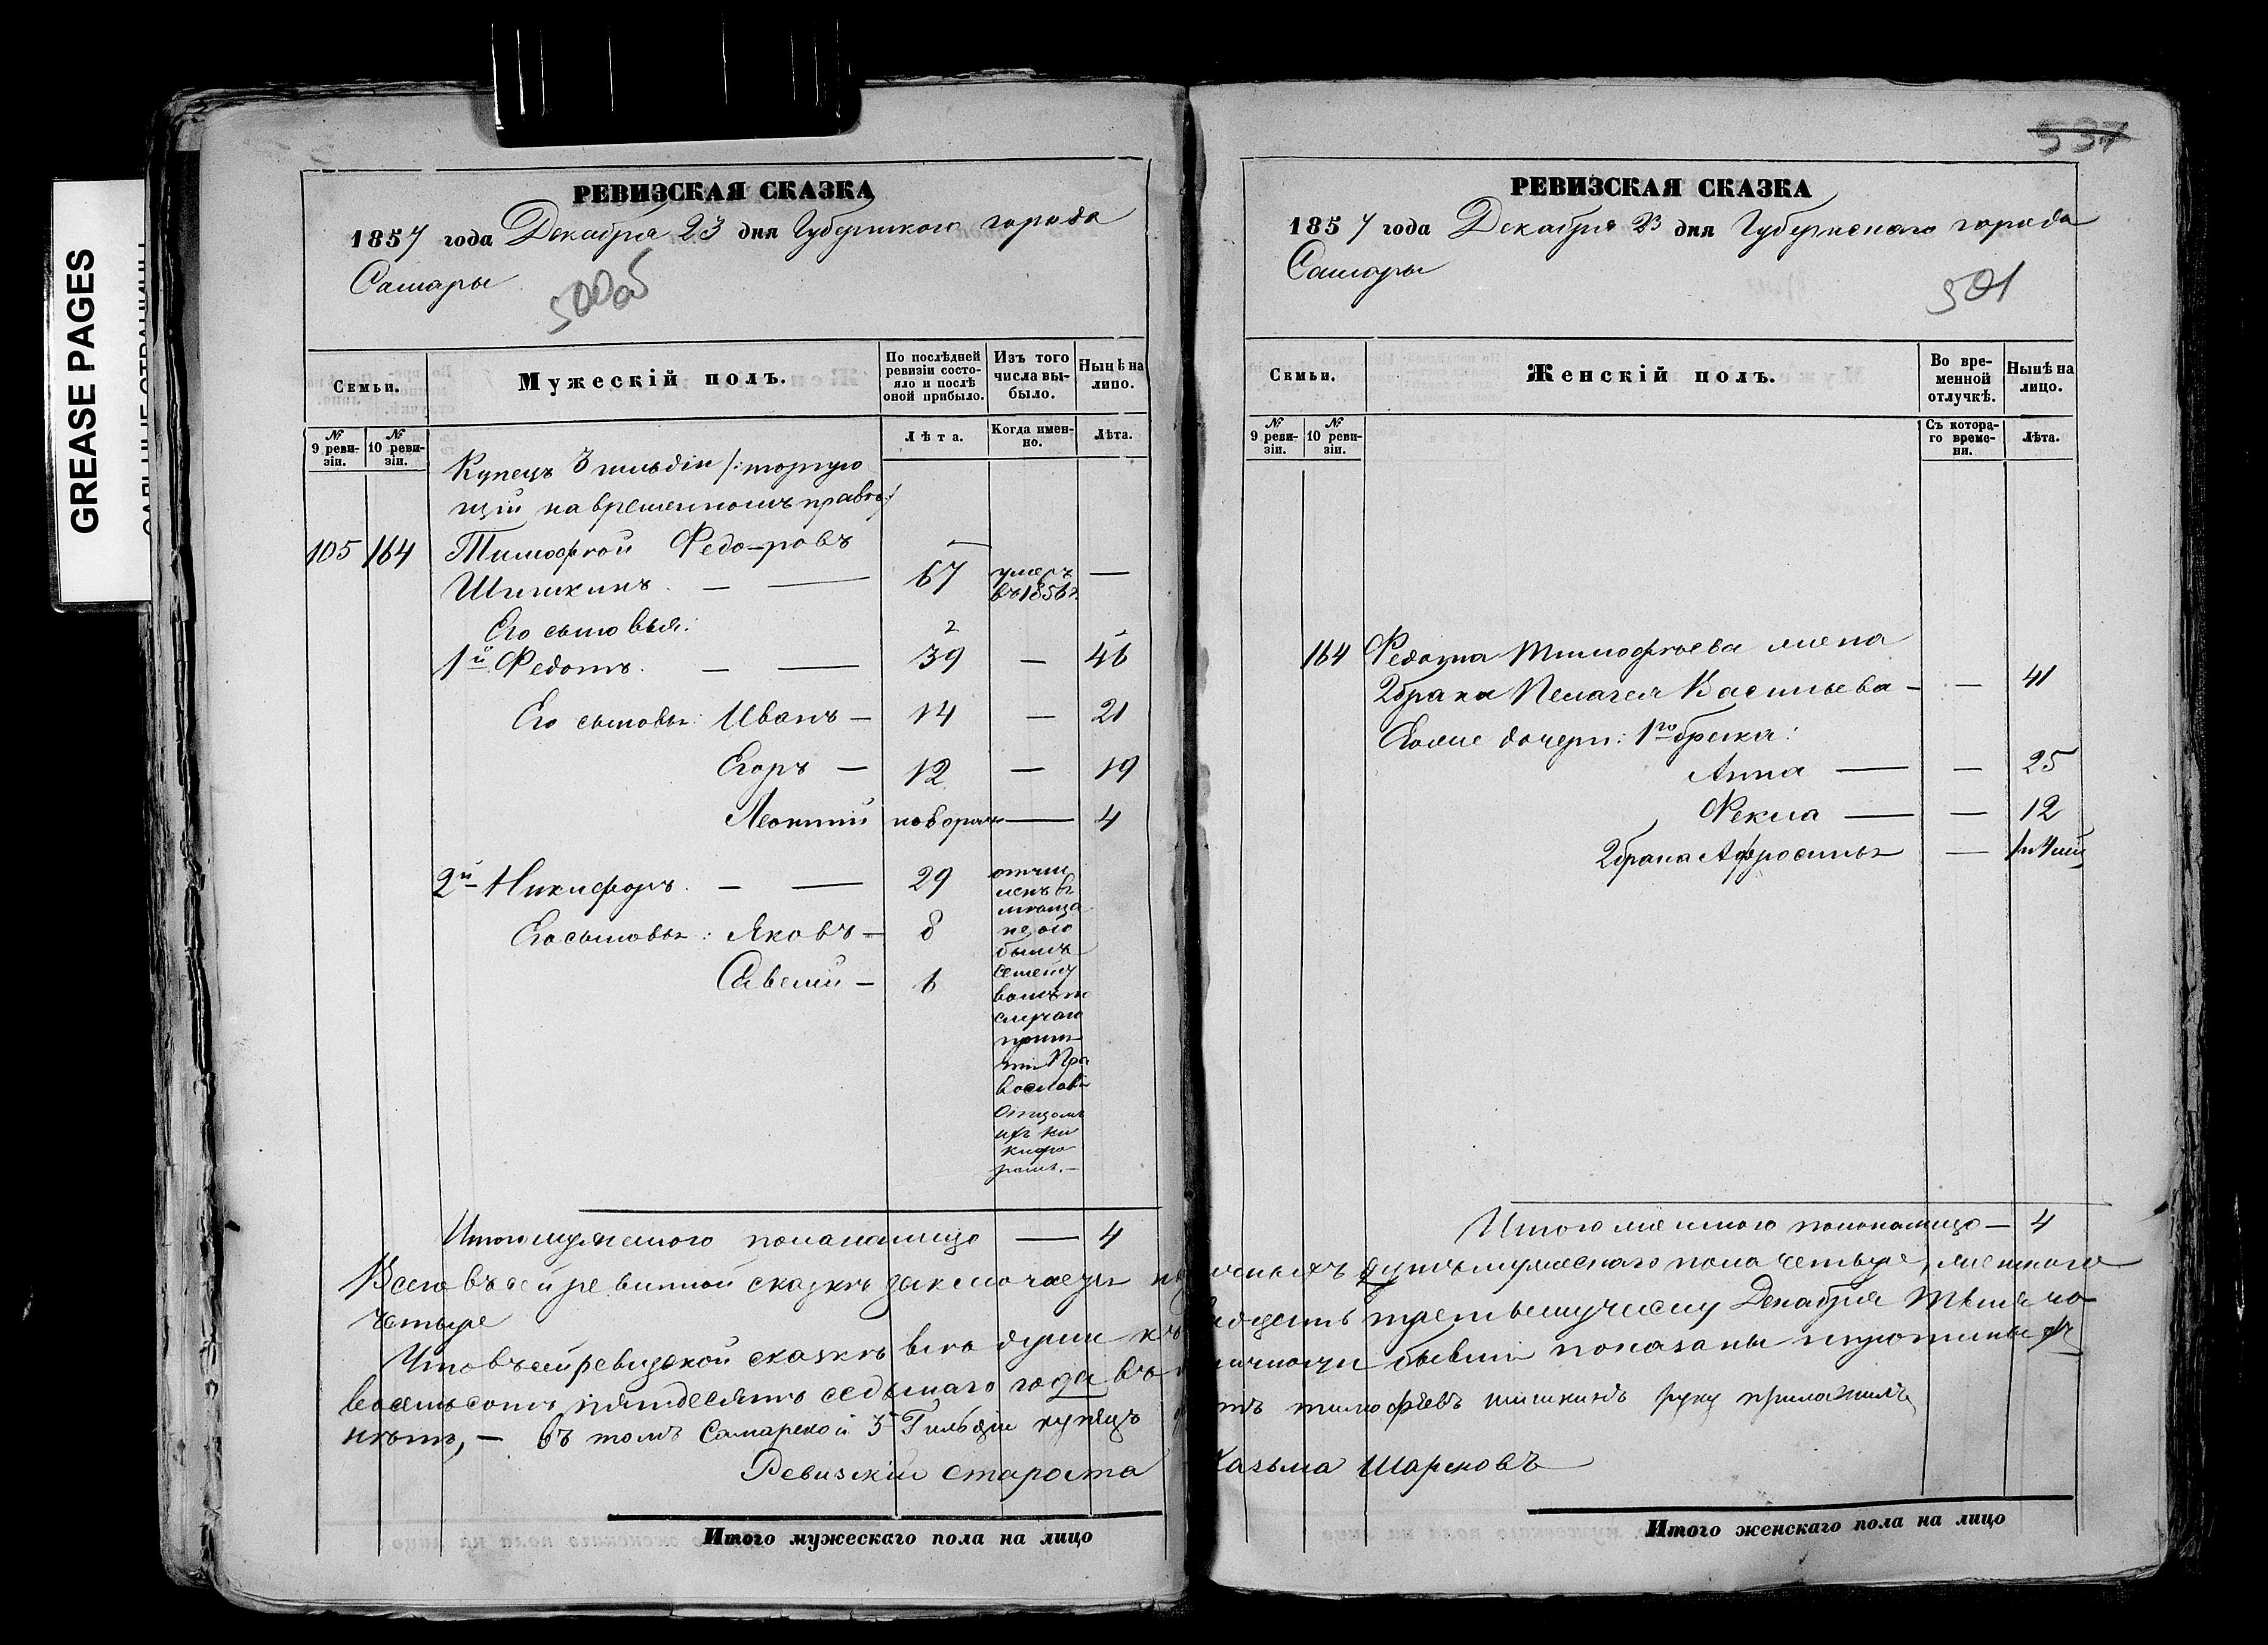 GREASE PAGES
РЕВИЗСКАЯ СКАЗКА
1857 года Декабря 23 дня Губернскаго города
Самары
500об
Семьи.
Мужескій полъ.
По послѣдней ревизіи состояло и послѣ оной прибыло.
Изъ того числа выбыло.
Нынѣ на лицо.
№ 9 ревизіи.
№ 10 ревизіи.
Лѣта.
Когда именно.
Лѣта.
Купецъ 3 гильдіи /:торгую
щій на временномъ правѣ:/
105 164 Тимофѣй Федо-ровъ
Шишкинъ. — — 67 умеръ въ 1856 г —
Его сыновья: 2
1й Федотъ. — — 39 — 46
Его сыновья: Иванъ — 14 — 21
Егоръ — 12 — 19
Леонтій новорож — 4
2й Никифоръ. — — 29
Его сыновья: Яковъ — 8
Савелій — 6
отчис
ленъ въ
мѣща
не со
семей
ству
случаю
приня
тія Пра
вославія
Отцомъ
ихъ Ни
кифо
ромъ. —
Итого мужескаго пола на лицо — 4
Всего въ сей ревизкой сказкѣ заключается
четыре
Что въ сей ревизской сказкѣ всѣ души къ
восемьсотъ пятдесятъ седьмаго года въ
нѣтъ, — въ томъ Самарской 3 Гильдіи купецъ
Ревизскій староста
Итого мужескаго пола на лицо
537
РЕВИЗСКАЯ СКАЗКА
1857 года Декабря 23 дня Губернскаго города
Самары
501
Семьи.
Женскій полъ.
Во временной отлучкѣ.
Нынѣ на лицо.
№ 9 ревизіи.
№ 10 ревизіи.
Съ котораго времени.
Лѣта.
164 Федота Тимофѣева жена
2 брака Пелагея Васильева — — 41
Ево же дочери: 1го брака:
Анна — — 25
Фекла — — 12
2 брака Афросинья —
Итого женскаго пола на лицо — 4
душъ мужескаго пола четыре, женскаго
третьему числу Декабря тысяча
бывши показаны и пропины
тимофѣевъ шишкинъ руку приложилъ
Казьма Шареновъ
Итого женскаго пола на лицо